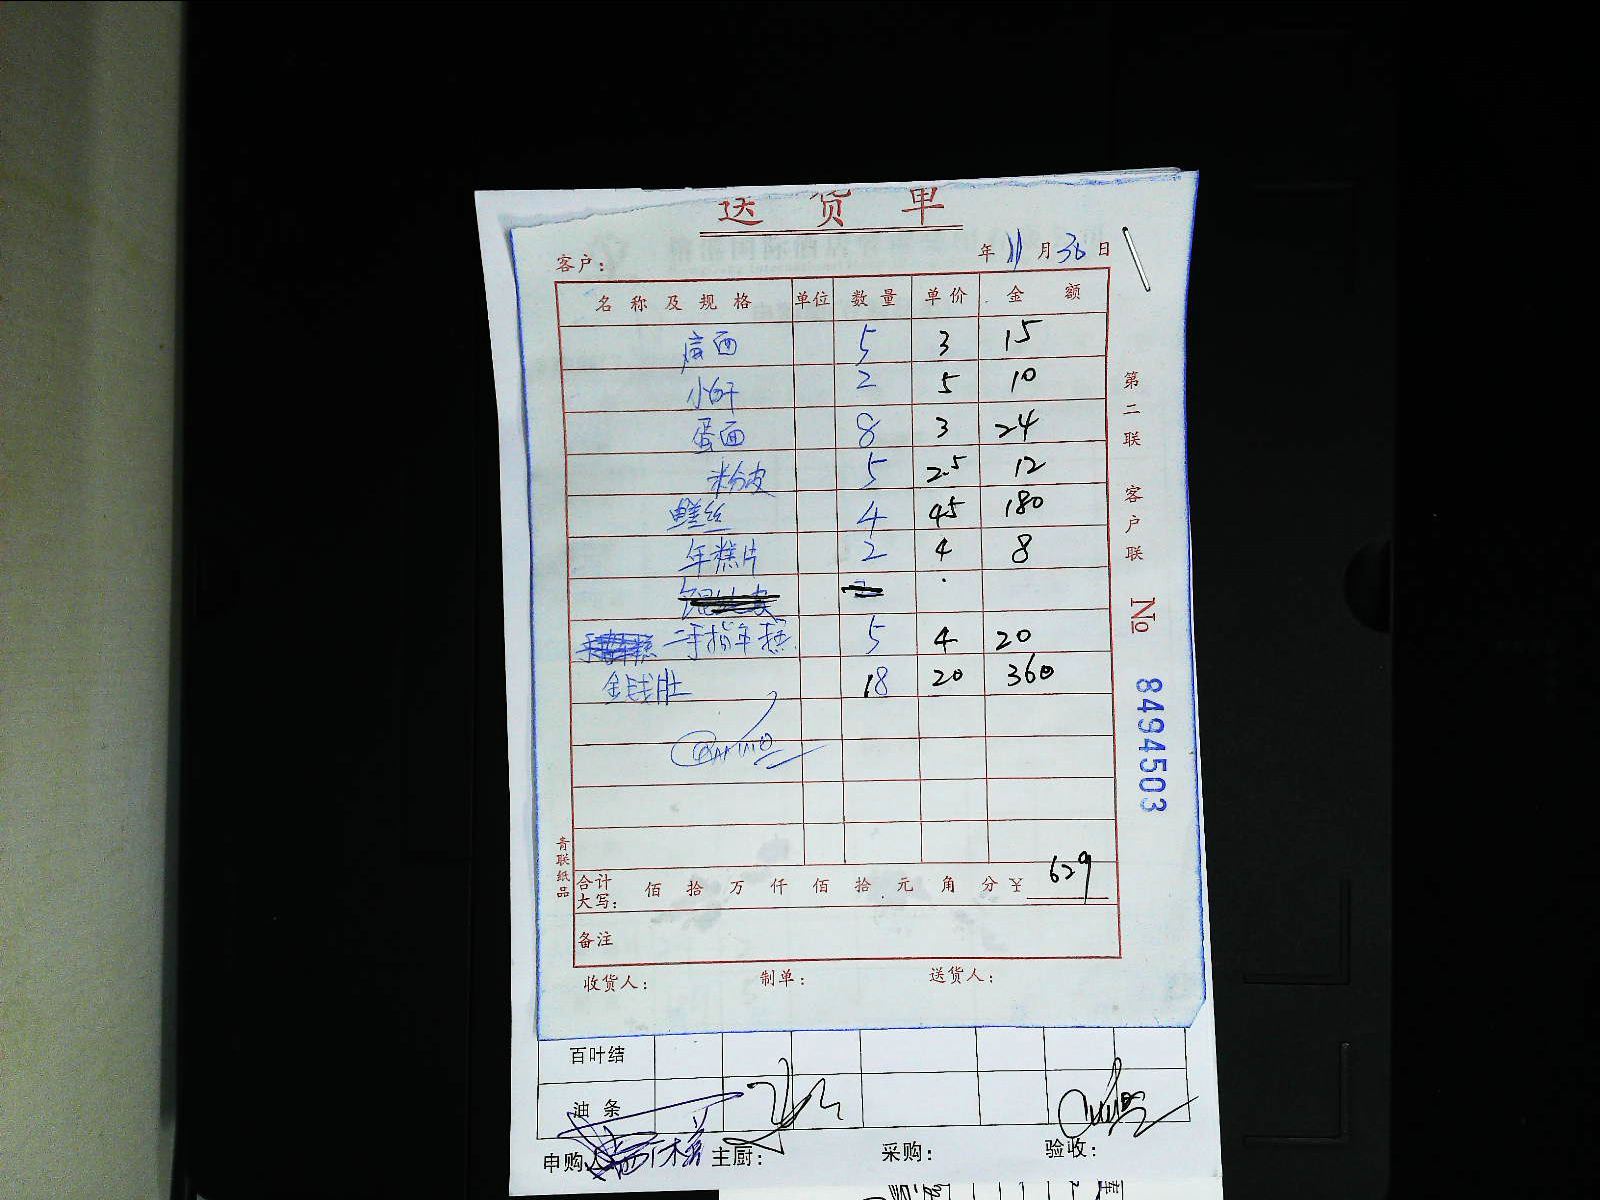 送货单
客户： 年 11 月 30 日
名称及规格 单位 数量 单价 金额
面 5 3 15
小白干 2 5 10
蛋面 8 3 24
粉皮 5 2.5 12
鳝丝 4 45 180
年糕片 2 4 8
二手指年糕 5 4 20
金钱肚 18 20 360
合计大写： 佰 拾 万 仟 佰 拾 元 角 分 ¥ 629
备注
收货人： 制单： 送货人：
第二联 客户联
№ 8494503
青联纸品
百叶结
油条
申购人 主厨： 采购： 验收：